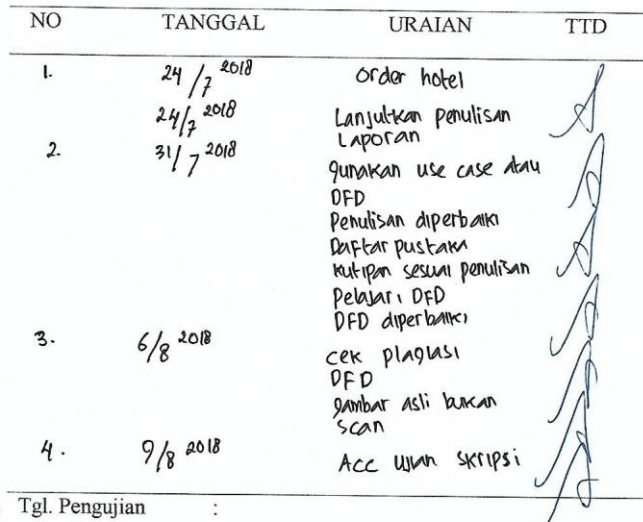 NO TANGGAL URAIAN TTD
1. 24/7 2018 order hotel
24/7 2018 Lanjutkan penulisan
Laporan
2. 31/7 2018
gunakan use case atau
DFD
Penulisan diperbaiki
Daftar pustaka
kutipan sesuai penulisan
Pelajari DFD
DFD diperbaiki
3. 6/8 2018
cek plagiasi
DFD
gambar asli bukan
scan
4. 9/8 2018 Acc ujian skripsi
Tgl. Pengujian :